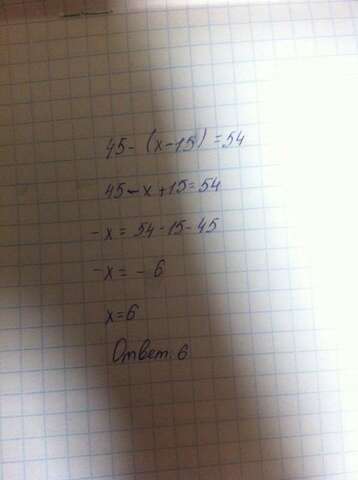 45 - (x - 15) = 54
45 - x + 15 = 54
- x = 54 - 15 - 45
- x = - 6
x = 6
Ответ: 6